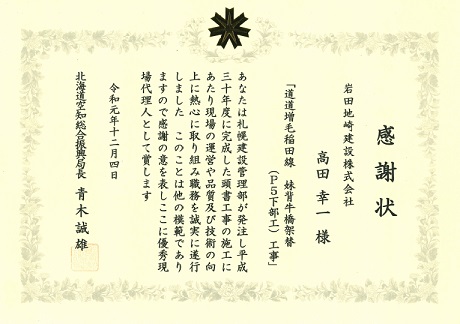 感謝状
岩田地崎建設株式会社
高田幸一 様
「道道増毛稲田線 妹背牛橋架替
(P5下部工)工事」
あなたは札幌建設管理部が発注し平成
三十年度に完成した頭書工事の施工に
あたり現場の運営や品質及び技術の向
上に熱心に取り組み職務を誠実に遂行
しました このことは他の模範であり
ますので感謝の意を表しここに優秀現
場代理人として賞します
令和元年十二月四日
北海道空知総合振興局長 青木誠雄